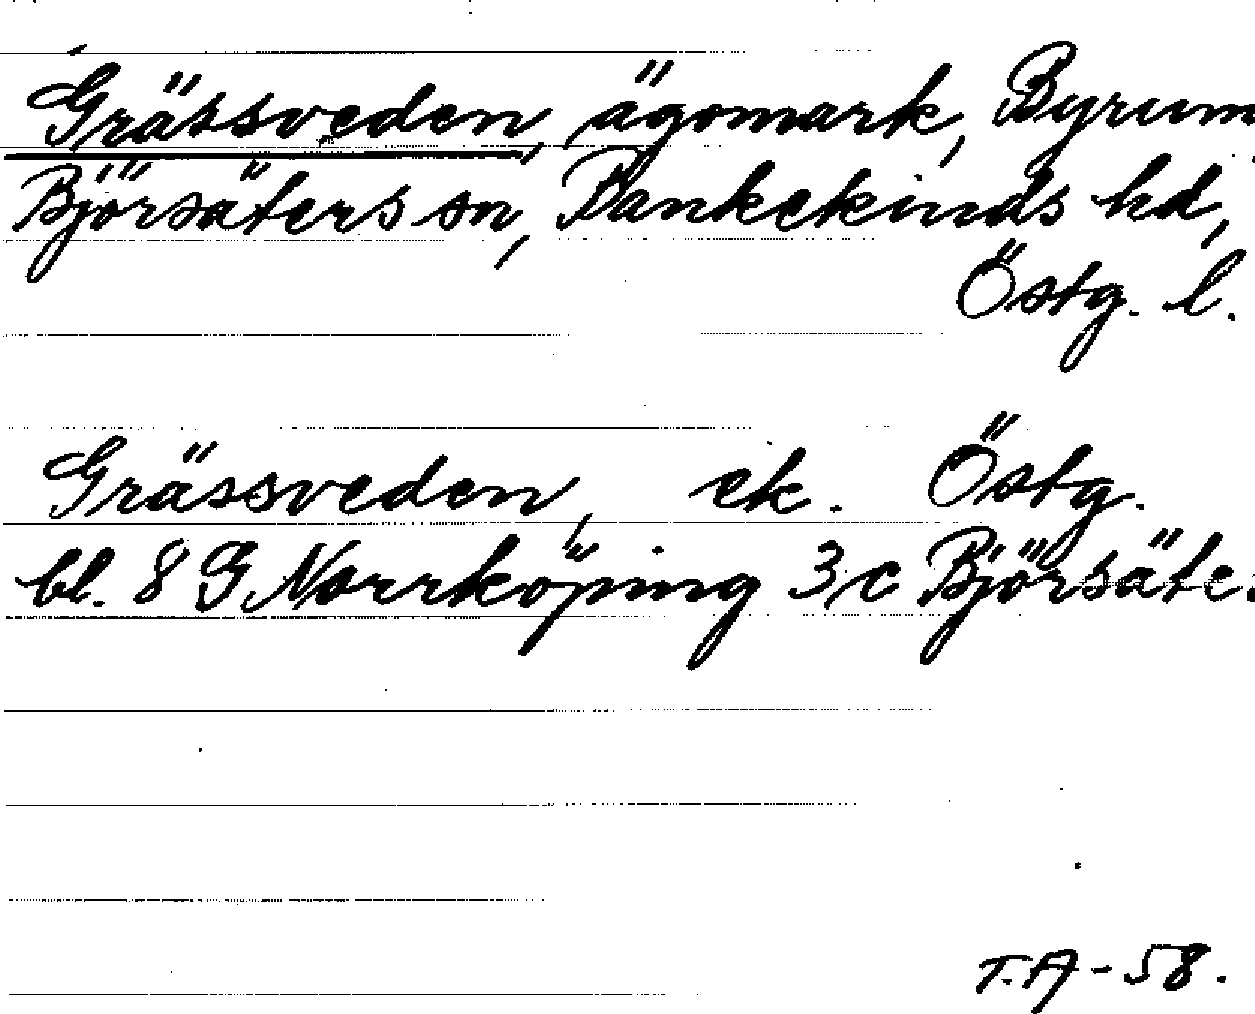 Grässveden, ägomark, Byrum
Björsäters sn, Bankekinds hd,
Östg. l.
Grässveden, ek. Östg.
bl. 8 G Norrköping 3 c Björsäte
T.A-58.